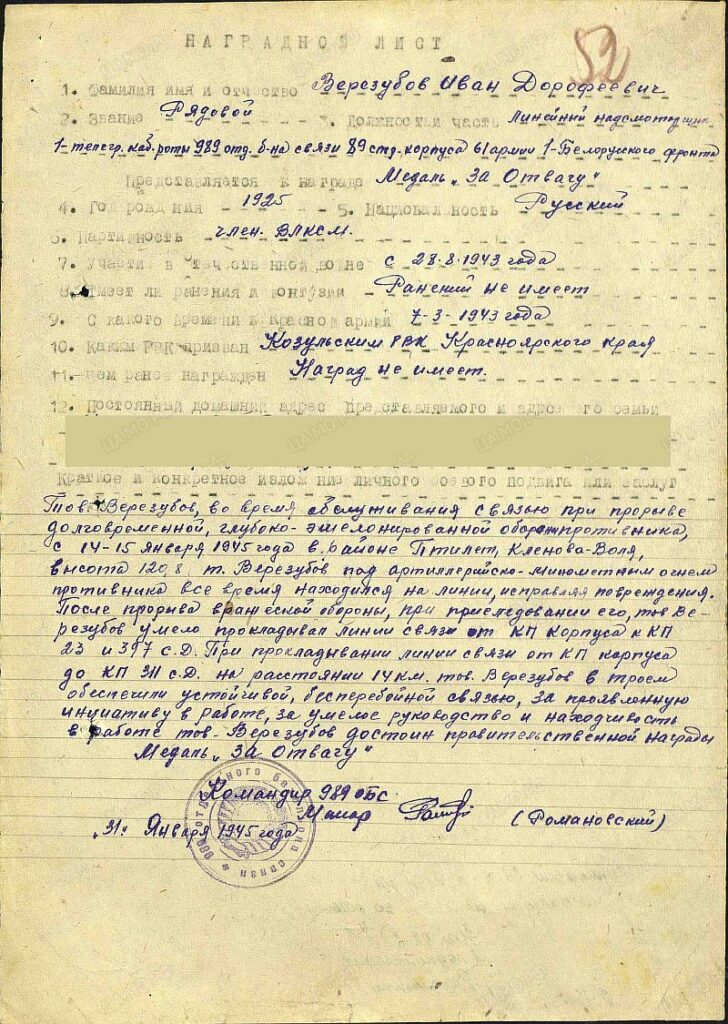 52
НАГРАДНОЙ ЛИСТ
1. Фамилия имя и отчество Верезубов Иван Дорофеевич
2. Звание Рядовой . Должность и часть Линейный надсмотрщик
1-телегр. каб. роты 989 отд. б-на связи 89 стр. корпуса 61 армии 1-Белорусского фронта
Представляется к награде Медаль „За Отвагу"
4. Год рождения 1925 5. Национальность Русский
6. Партийность член. ВЛКСМ.
7. Участие в отечественной войне с 28.8.1943 года
8. Имеет ли ранения и контузии Ранений не имеет
9. С какого времени в Красной армии 7-3-1943 года
10. Каким РВК призван Козульским РВК Красноярского края
11. Чем ранее награжден Наград не имеет.
12. Постоянный домашний адрес представляемого и адрес его семьи
Краткое и конкретное изложение личного боевого подвига или заслуг
Тов. Верезубов, во время обслуживания связью при прорыве
долговременной, глубоко-эшелонированной оборон противника,
с 14-15 Января 1945 года в районе Птилет, Кленова-Воля,
высота 120,8 т. Верезубов под артиллерийско-минометным огнем
противника все время находился на линии, исправляя повреждения.
После прорыва вражеской обороны, при приследовании его, тов Ве-
резубов умело прокладывал линии связи от КП Корпуса к КП
23 и 397 с.д. При прокладывании линии связи от КП корпуса
до КП 311 с.д. на расстоянии 14 км. тов. Верезубов в троем
обеспечили устойчивой, бесперебойной связью, за проявленную
инициативу в работе, за умелое руководство и находчивость
в работе тов. Верезубов достоин правительственной награды
Медаль „За Отвагу"
Командир 989 ОБС
Маиор (Романовский)
„31" Января 1945 года